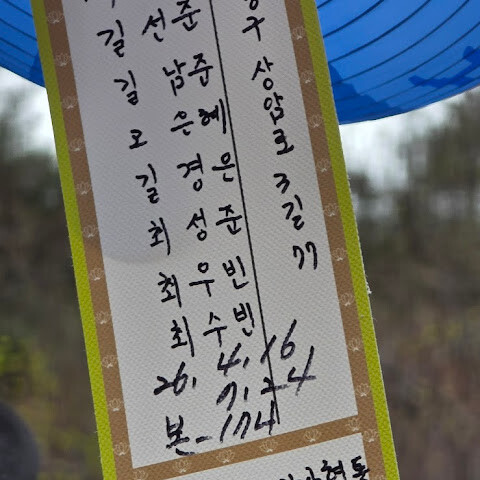 길선준
길남준
오은혜
길경은
최성준
최우빈
최수빈
구 상암로 3길 77
26. 4. 16
7. 24
본-174